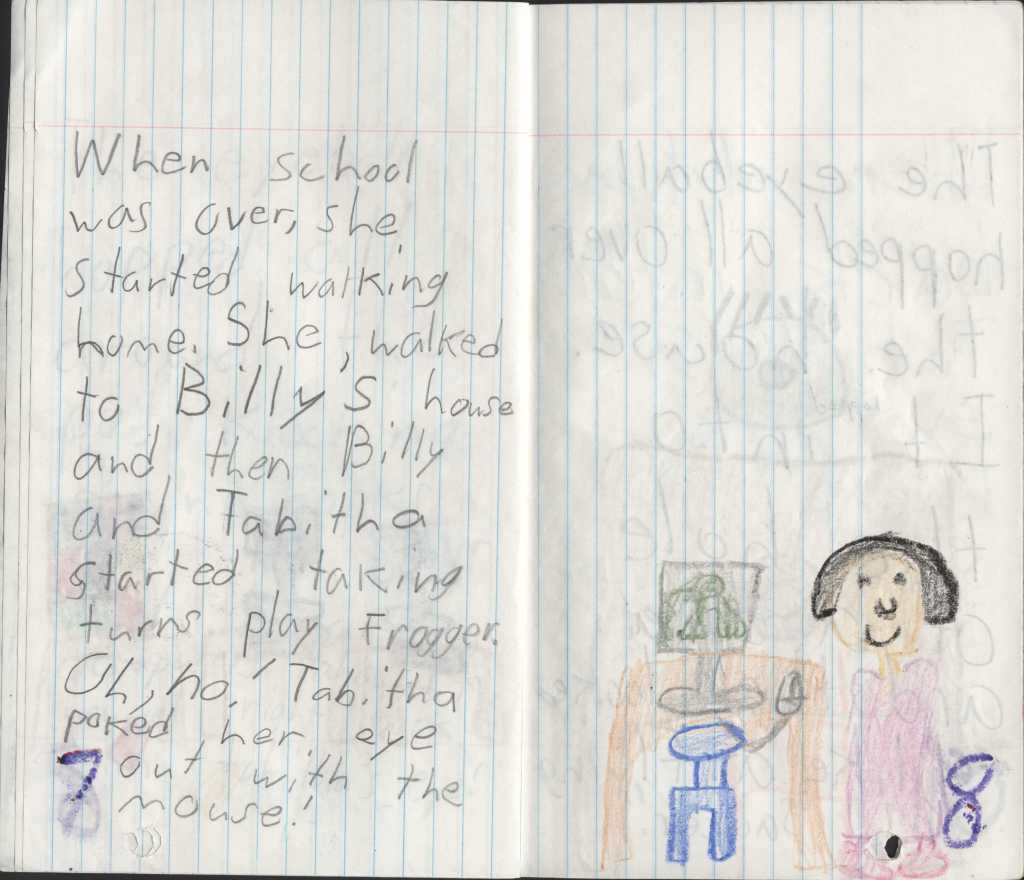 When school
was over, she
started walking
home. She, walked
to Billy's house
and then Billy
and Tabitha
started taking
turns play Frogger.
Oh, no, Tabitha
poked her eye
out with the
mouse!
7
8
The eyeball
hopped all over
the house.
It into